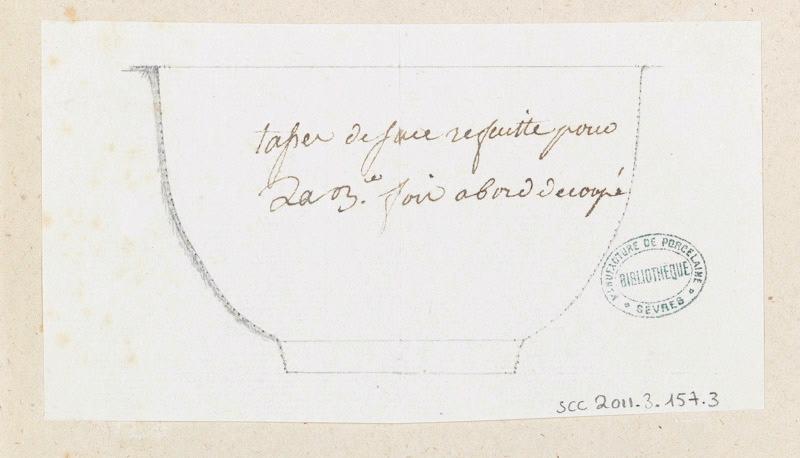 tasse de face refaitte pour
La 3.e fois a bord decoupé
MANUFACTURE DE PORCELAINE
BIBLIOTHEQUE
* SÈVRES *
SCC 2011.3.157.3